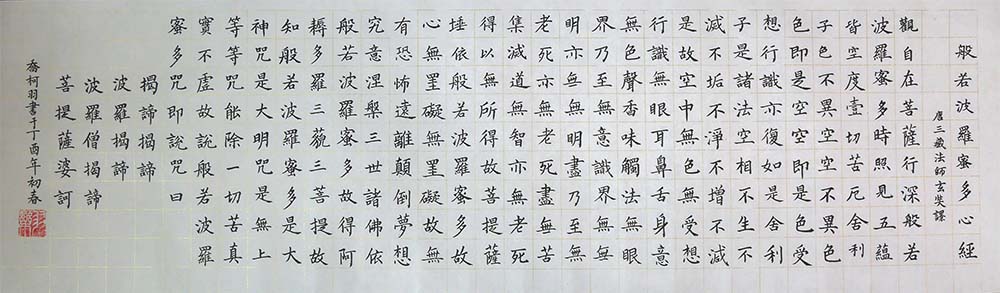 般若波羅蜜多心經
唐三藏法師玄奘譯
觀自在菩薩行深般若
波羅蜜多時照見五蘊
皆空度壹切苦厄舍利
子色不異空空不異色
色即是空空即是色受
想行識亦復如是舍利
子是諸法空相不生不
滅不垢不淨不增不減
是故空中無色無受想
行識無眼耳鼻舌身意
無色聲香味觸法無眼
界乃至無意識界無無
明亦無無明盡乃至無
老死亦無老死盡無苦
集滅道無智亦無老死
得以無所得故菩提薩
埵依般若波羅蜜多故
心無罣礙無罣礙故無
有恐怖遠離顛倒夢想
究竟涅槃三世諸佛依
般若波羅蜜多故得阿
耨多羅三藐三菩提故
知般若波羅蜜多是大
神咒是大明咒是無上
等等咒能除一切苦真
實不虛故說般若波羅
蜜多咒即說咒曰
揭諦揭諦
波羅揭諦
波羅僧揭諦
菩提薩婆訶
喬柯羽書于丁酉年初春